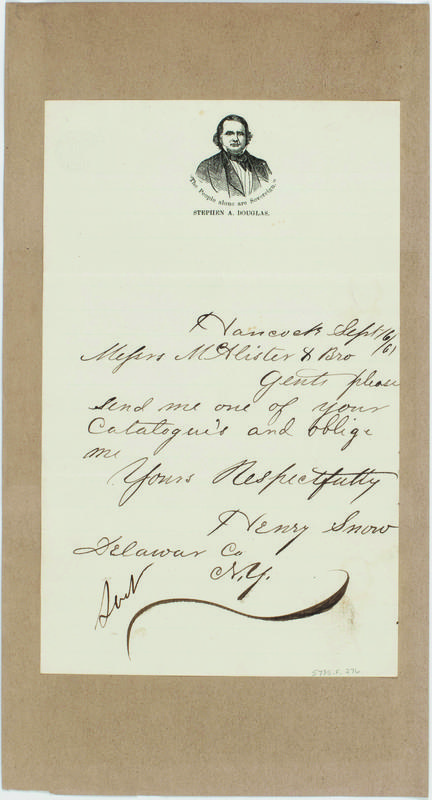 "The People alone are Sovereign."
STEPHEN A. DOUGLAS.
Hancock Sept 16/61
Messrs McAlister & Bro
Gents please
send me one of your
Catalogue's and oblige
me
Yours Respectfully
Henry Snow
Delawar Co
N.Y.
Sent
5795.F.276